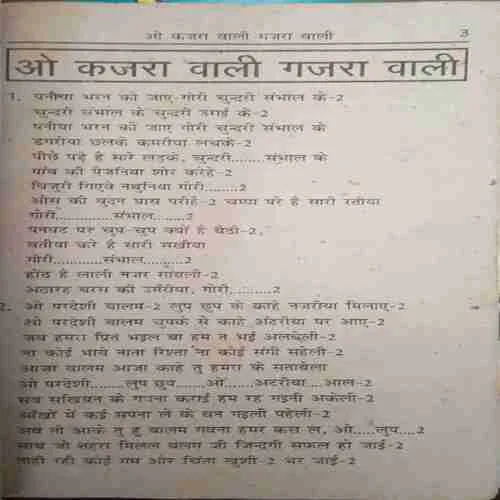 ओ कजरा वाली गजरा वाली 3
ओ कजरा वाली गजरा वाली
1. पनीया भरन को जाए-गोरी चुन्दरी संभाल के-2
चुन्दरी संभाल के चुन्दरी उगाई के-2
पनीया भरन को जाए गोरी चुन्दरी संभाल के
डगरीया छलके कमरीया लचके-2
पीछे पड़े है सारे लड़के, चुन्दरी.......संभाल के
पांव की पैजनिया शोर करेहे-2
बिजुरी गिरावे नथुनिया गोरी........2
ओस की बुदन घास परीहे-2 चम्पा पर है सारी रतीया
गोरी.............संभाल.........2
पनघट पर चुप-चुप क्यों है बैठी-2,
बतीया करे है सारी सखीया
गोरी...........संभाल.........2
होंठ है लाली नजर सांवली-2
अठारह बरस की उमरीया, गोरी..........2
2. ओ परदेशी बालम-2 लुप छुप के काहे नजरीया मिलाए-2
ओ परदेशी बालम चुपके से काहे अटरीया पर आए-2
जब हमरा प्रित भइल बा हम त भई अलबेली-2
ना कोई भाये नाता रिश्ता ना कोई संगी सहेली-2
आजा बालम आजा काहे तु हमरा के सताबेला
ओ परदेशी......लुप छुप.....ओ.....अटरीया....आल-2
सब सखियन के गवना कराई हम रह गइनी अकेली-2
आँखों में कई सपना ले के बन गइली पहेली-2
अब तो आके तु हु बालम गवना हमर करा ल, ओ.....लुप....2
साथ जो तोहरा मिलल बलम जी जिन्दगी सफल हो जाई-2
नाही रही कोई गम और चिंता खुशी-2 भर जाई-2